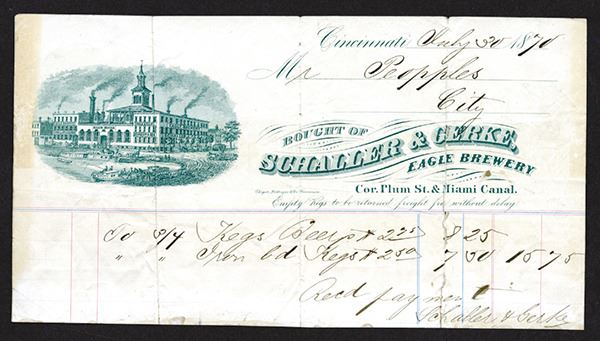 Cincinnati July 30 1870
Mr Peopples
City
BOUGHT OF
SCHALLER & GERKE,
EAGLE BREWERY
Cor. Plum St. & Miami Canal.
Empty Kegs to be returned freight free without delay
To 3/4 Kegs Beer 8 25
" " Kegs 2 50 7 50 15 75
Recd payment
Schaller & Gerke